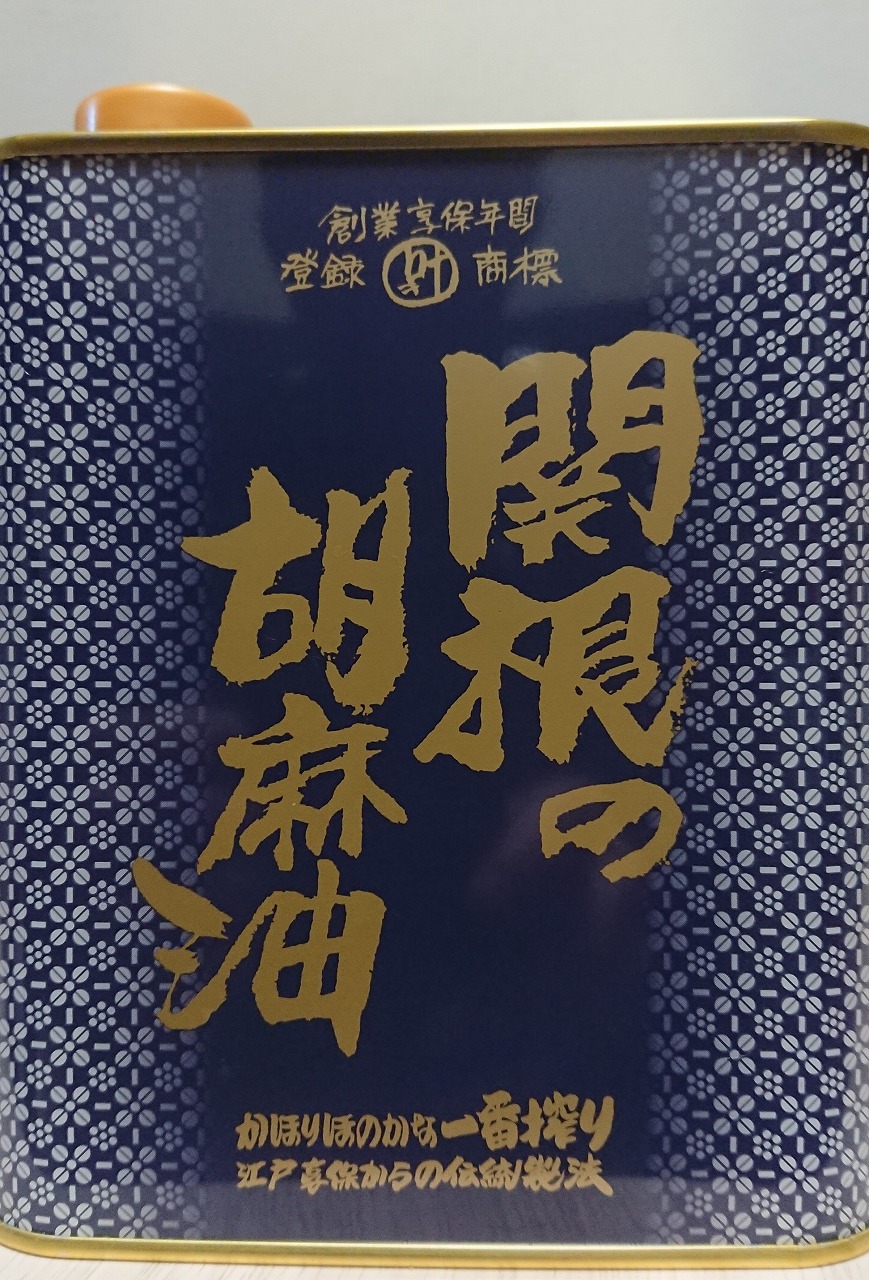 創業享保年間
登録 商標
関根の
胡麻油
かほりほのかな一番搾り
江戸享保からの伝統製法